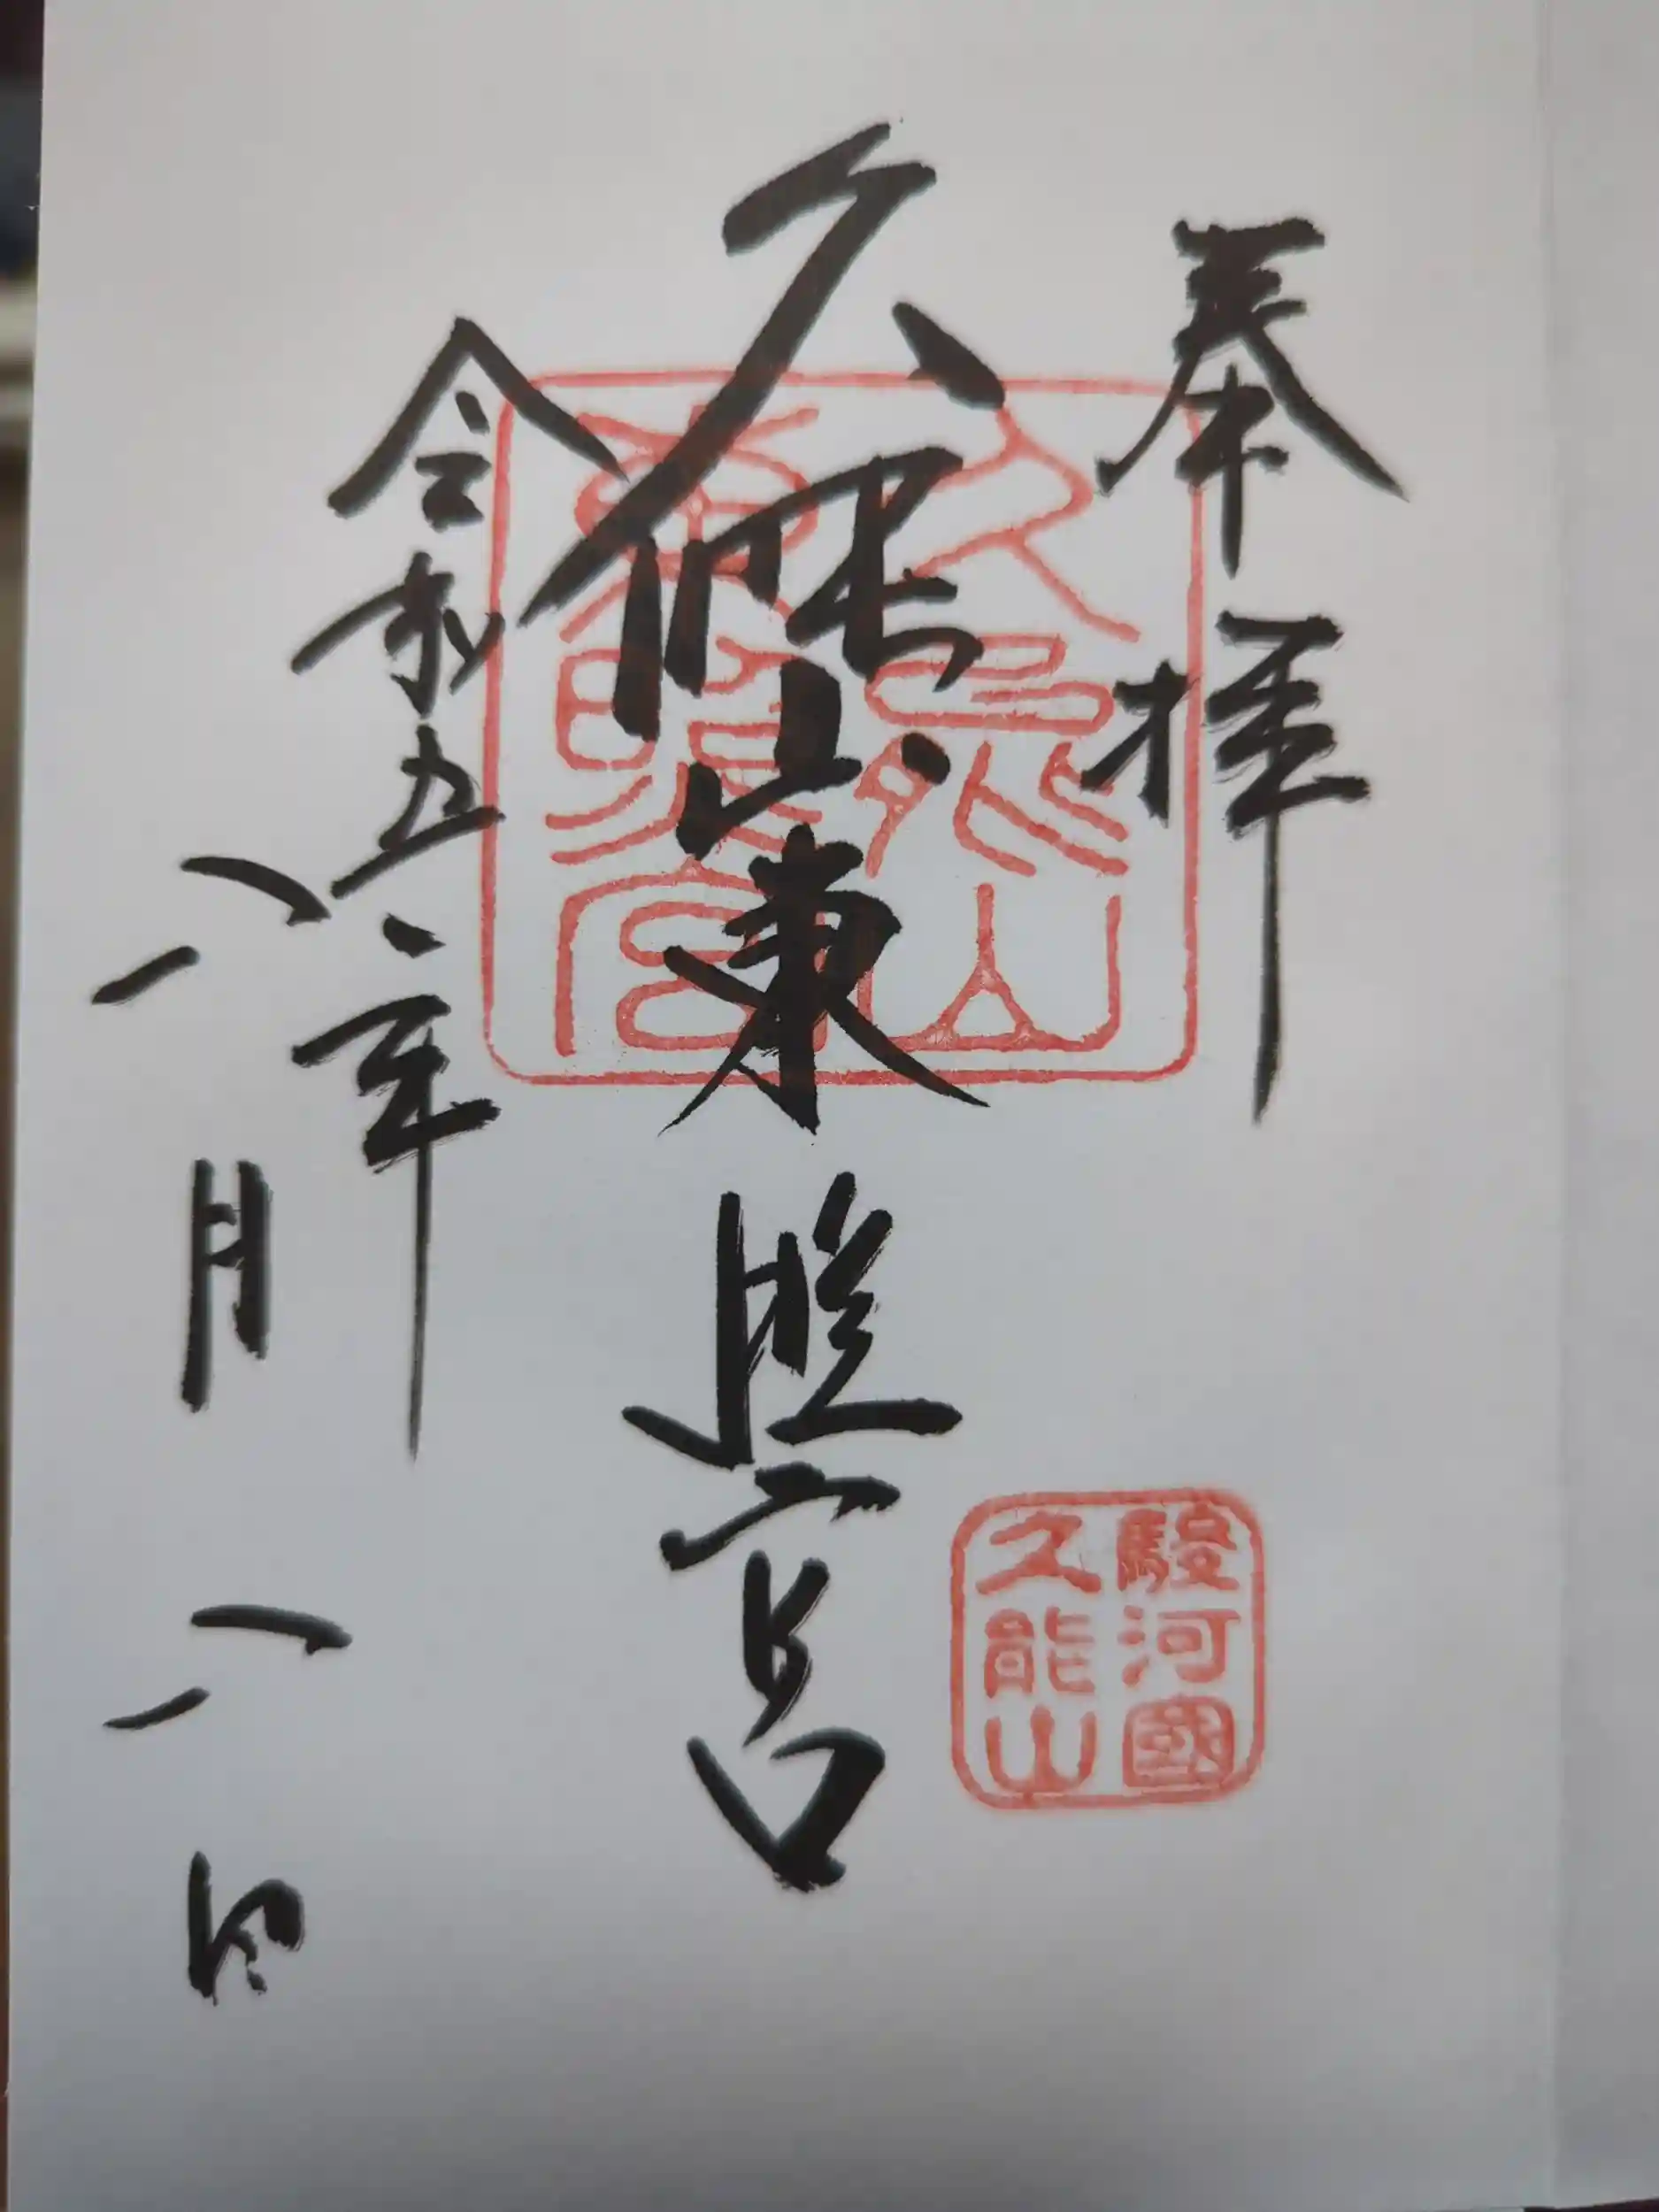 奉拝
久能山東照宮
令和五年
八月八日
久能山
東照宮
駿河國
久能山